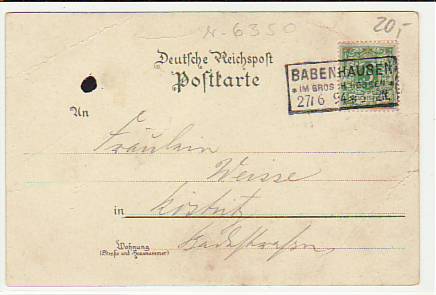 20,-
N-6350
Deutsche Reichspost
Postkarte
BABENHAUSEN
* IM GROSH. HESSEN *
27/6
An
Fräulein
Weisse
in Köstritz
Wohnung
(Straße und Hausnummer)
Badestrasse